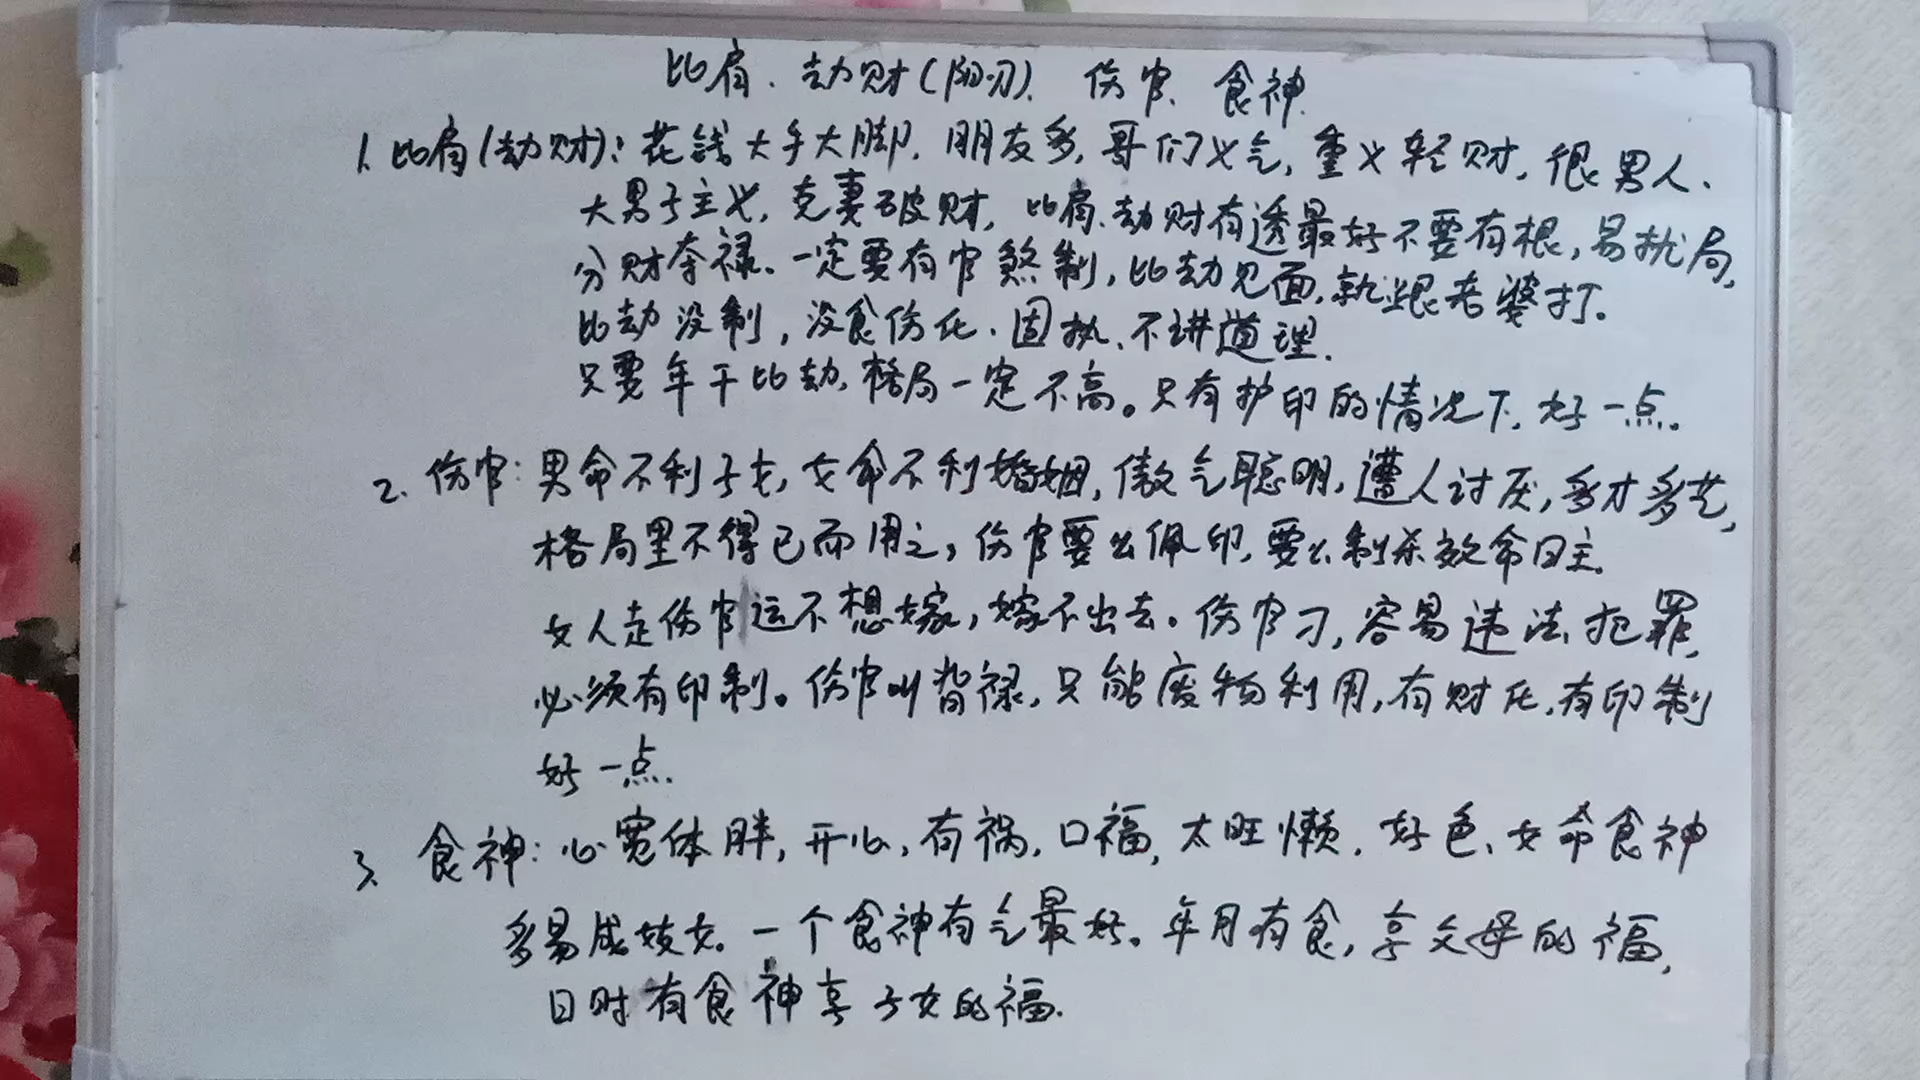 比肩、劫财(阳刃)、伤官、食神
1、比肩(劫财):花钱大手大脚,朋友多,哥们义气,重义轻财,很男人、
大男子主义,克妻破财,比肩、劫财有透最好不要有根,易扰局,
分财夺禄、一定要有官煞制,比劫见面,就跟老婆打。
比劫没制,没食伤化、固执、不讲道理.
只要年干比劫,格局一定不高。只有护印的情况下,好一点。
2、伤官:男命不利子女,女命不利婚姻,傲气聪明,遭人讨厌,多才多艺,
格局里不得已而用之,伤官要么佩印,要么制杀效命日主.
女人走伤官运不想嫁,嫁不出去。伤官刁,容易违法犯罪,
必须有印制。伤官叫背禄,只能废物利用,有财化,有印制
好一点.
3、食神:心宽体胖,开心,有祸,口福,太旺懒,好色、女命食神
多易成妓女。一个食神有气最好。年月有食,享父母的福,
日时有食神享子女的福.